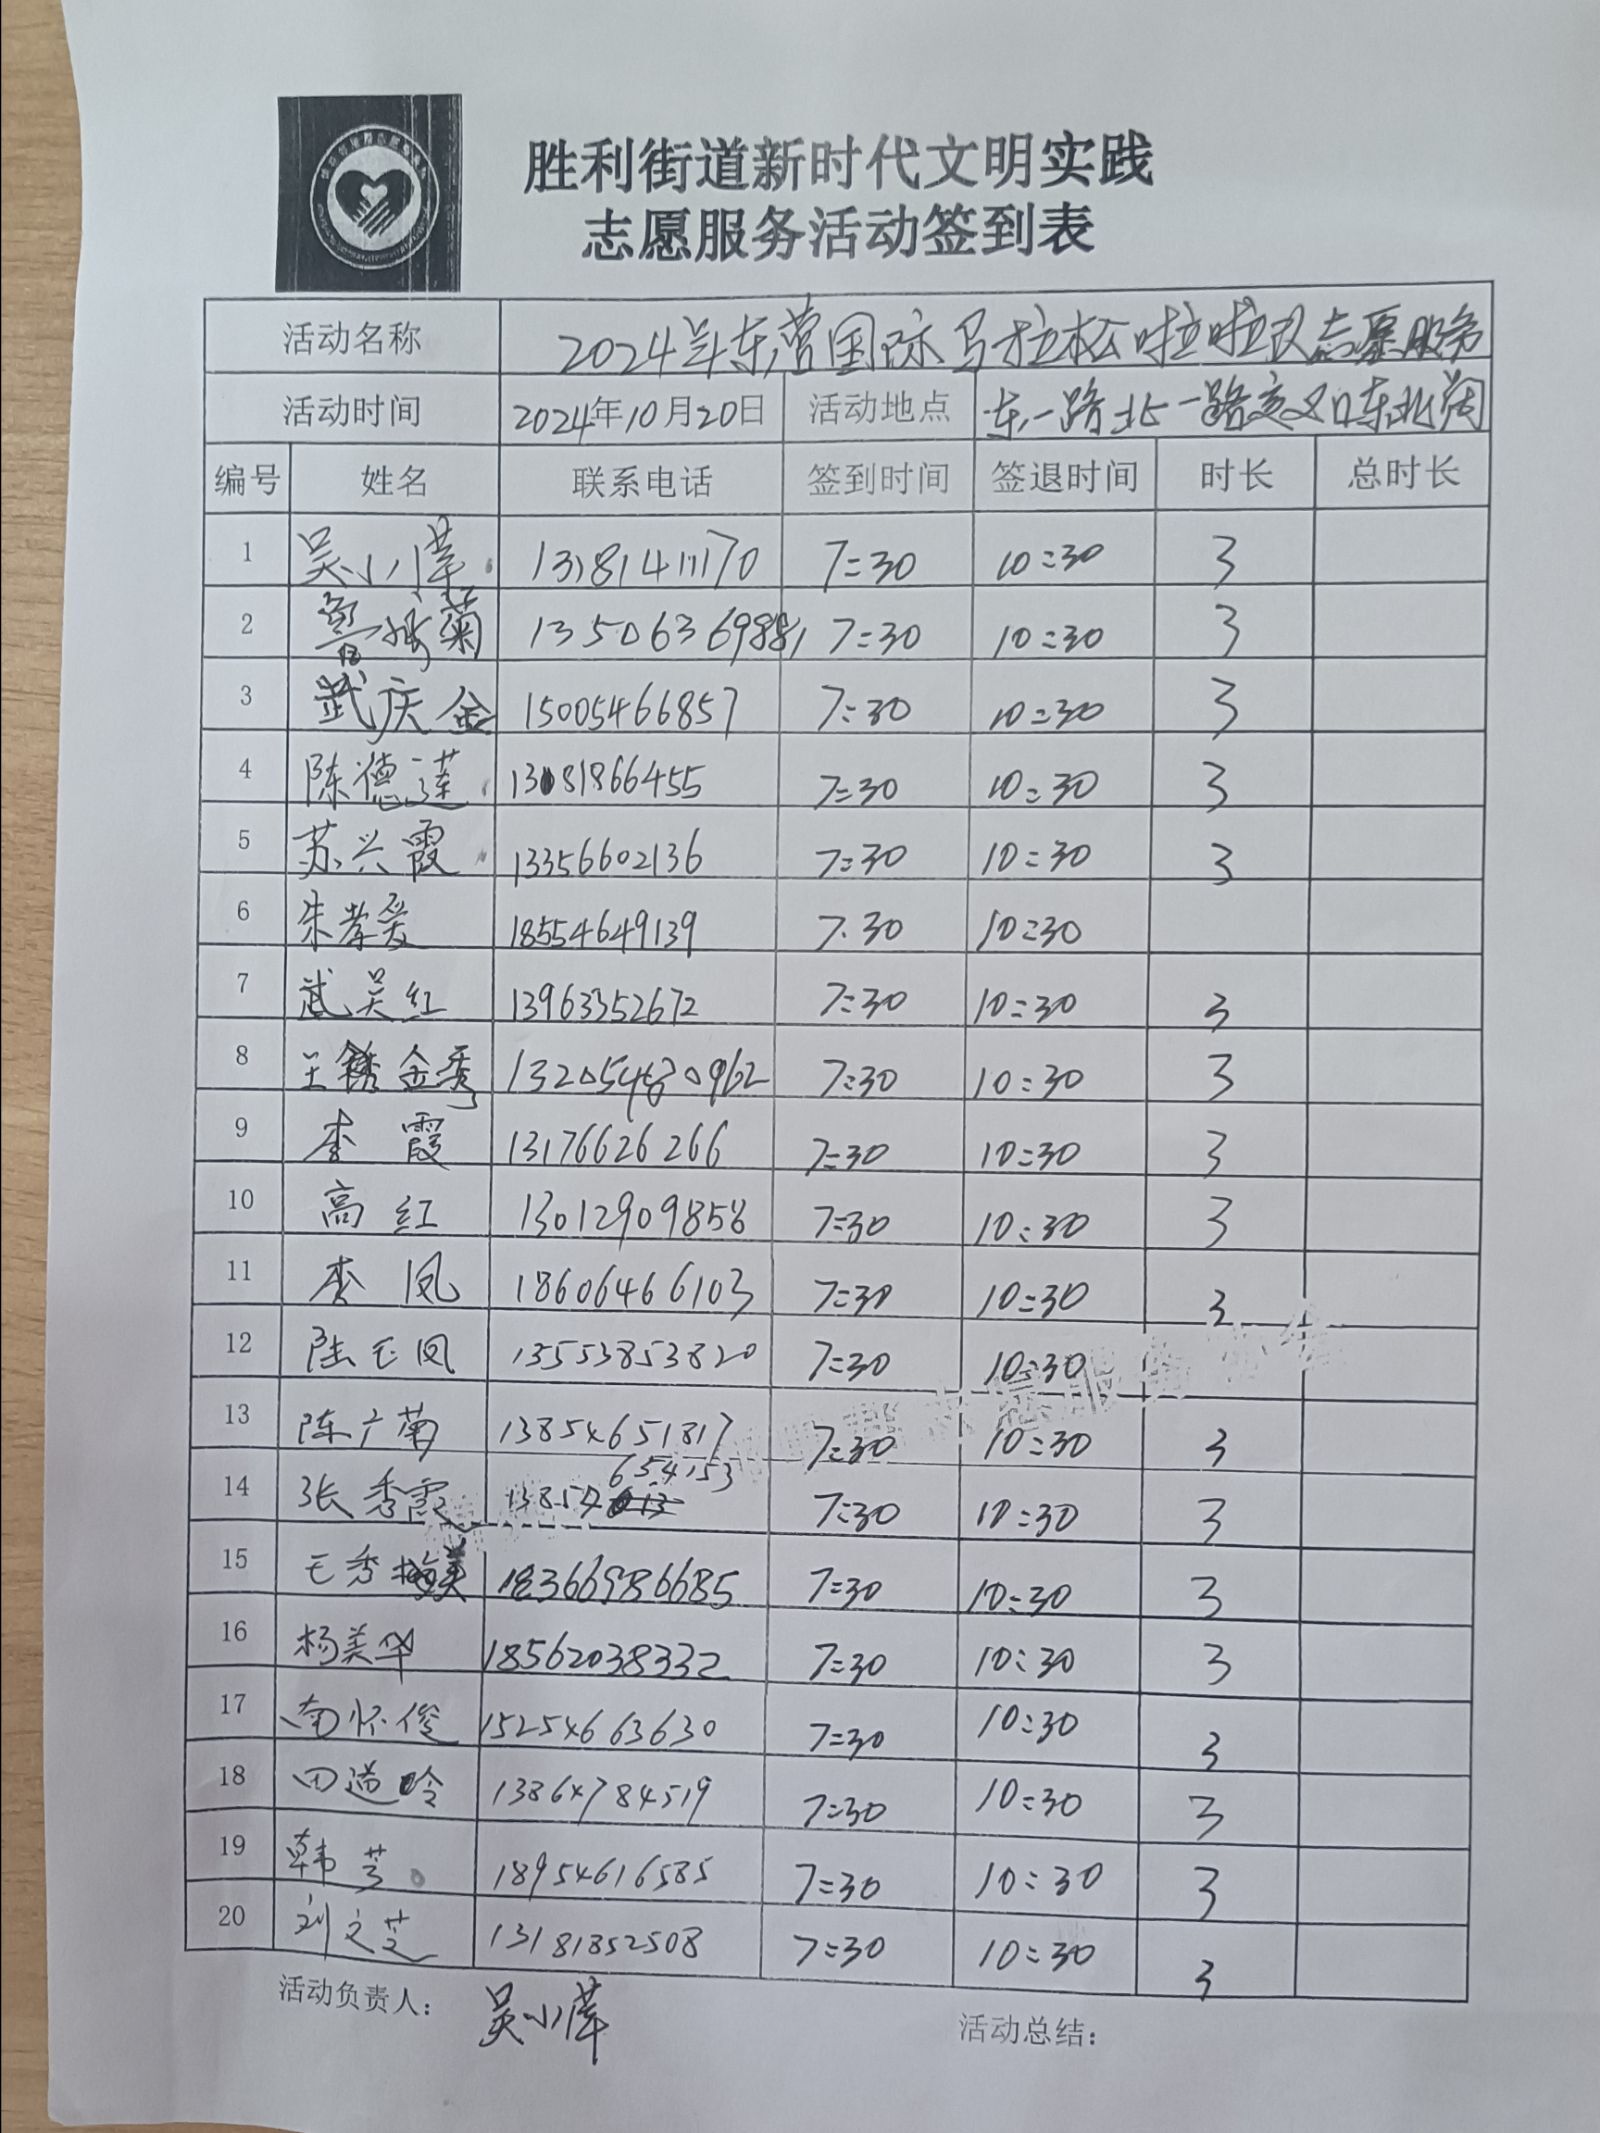 胜利街道新时代文明实践
志愿服务活动签到表
活动名称 2024年东营国际马拉松啦啦队志愿服务
活动时间 2024年10月20日 活动地点 东一路北一路交叉口东北
编号 姓名 联系电话 签到时间 签退时间 时长 总时长
1 吴小萍 7:30 10:30 3
2 菊 7:30 10:30 3
3 武庆金 15005466857 7:30 10:30 3
4 陈德莲 7:30 10:30 3
5 苏兴霞 13356602136 7:30 10:30 3
6 朱孝爱 18554649139 7.30 10:30
7 武吴红 13963352672 7:30 10:30 3
8 王金秀 7:30 10:30 3
9 李霞 13176626266 7:30 10:30 3
10 高红 13012909858 7:30 10:30 3
11 李凤 18606466103 7:30 10:30 3
12 陆玉凤 13553853820 7:30 10:30
13 陈广菊 13854651817 7:30 10:30 3
14 张秀霞 13854654153 7:30 10:30 3
15 王秀美 18366986685 7:30 10:30 3
16 杨美华 18562038332 7:30 10:30 3
17 南怀俊 15254663630 7:30 10:30 3
18 田道 13864784519 7:30 10:30 3
19 韩芳 18954616585 7:30 10:30 3
20 刘文芝 13181852508 7:30 10:30 3
活动负责人： 吴小萍 活动总结：